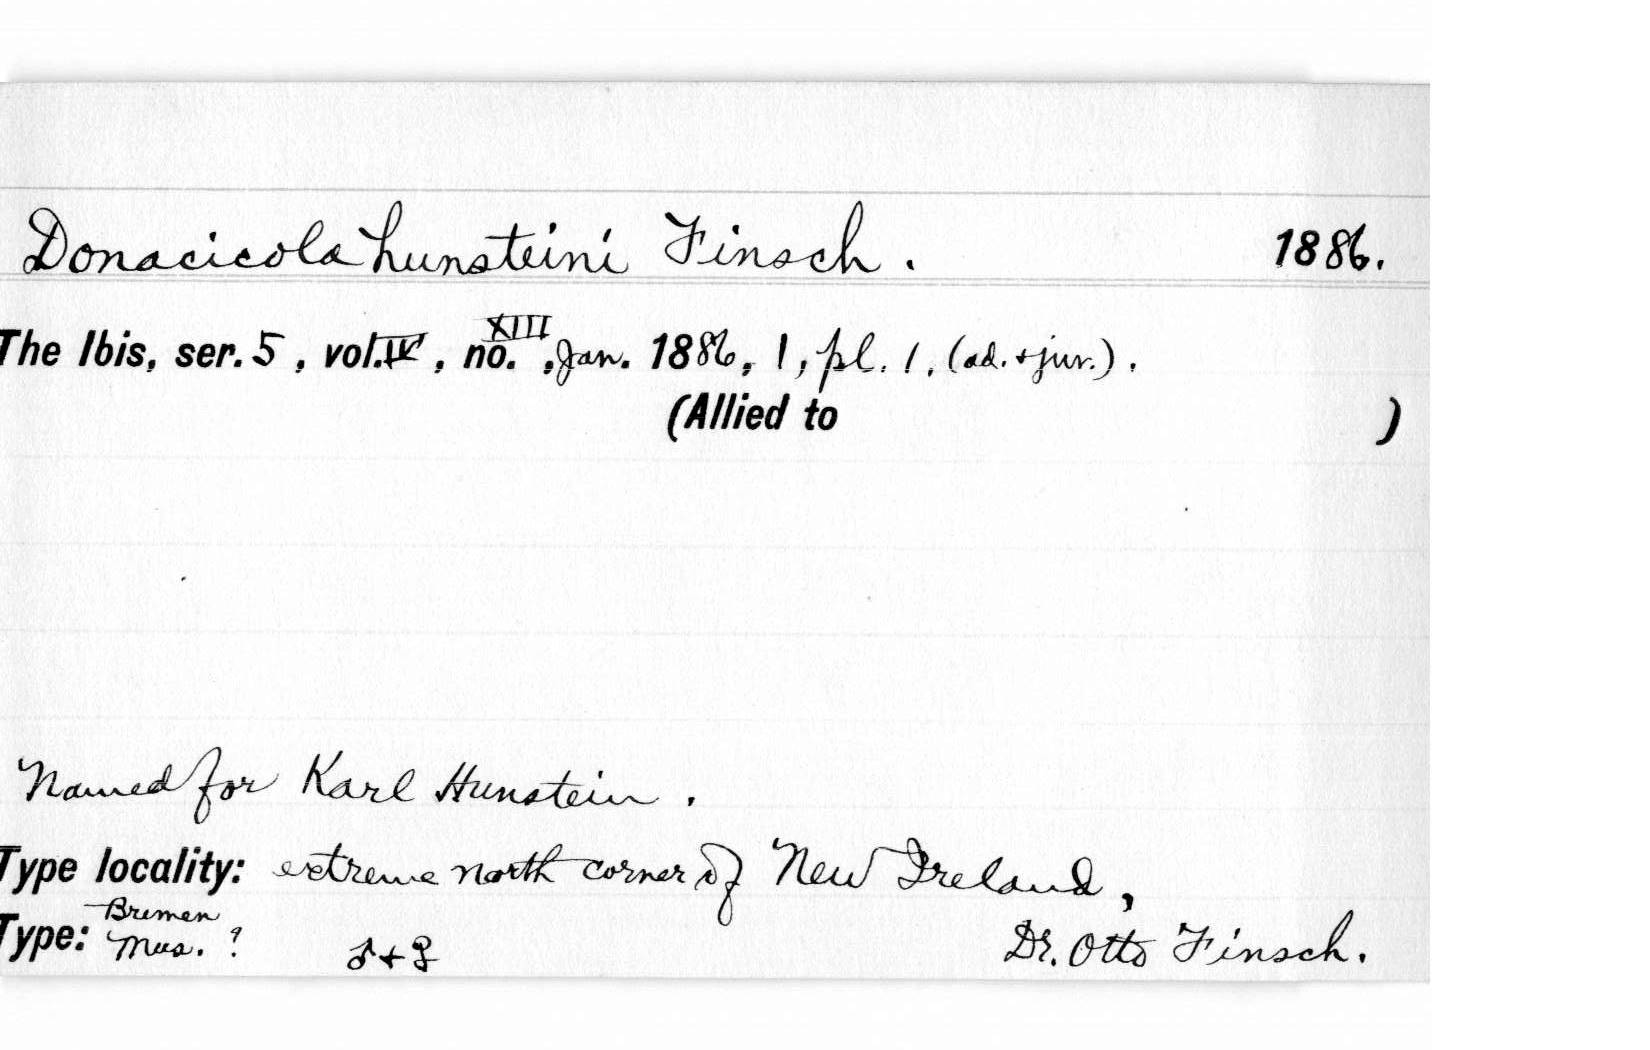 Donacicola hunsteini Finsch. 1886.
The Ibis, ser. 5, vol. IV, no. XIII, Jan. 1886, 1, pl. 1, (ad. + juv.).
(Allied to )
Named for Karl Hunstein.
Type locality: extreme north corner of New Ireland,
Type: Bremen Mus. ? ♂ + ♀ Dr. Otto Finsch.